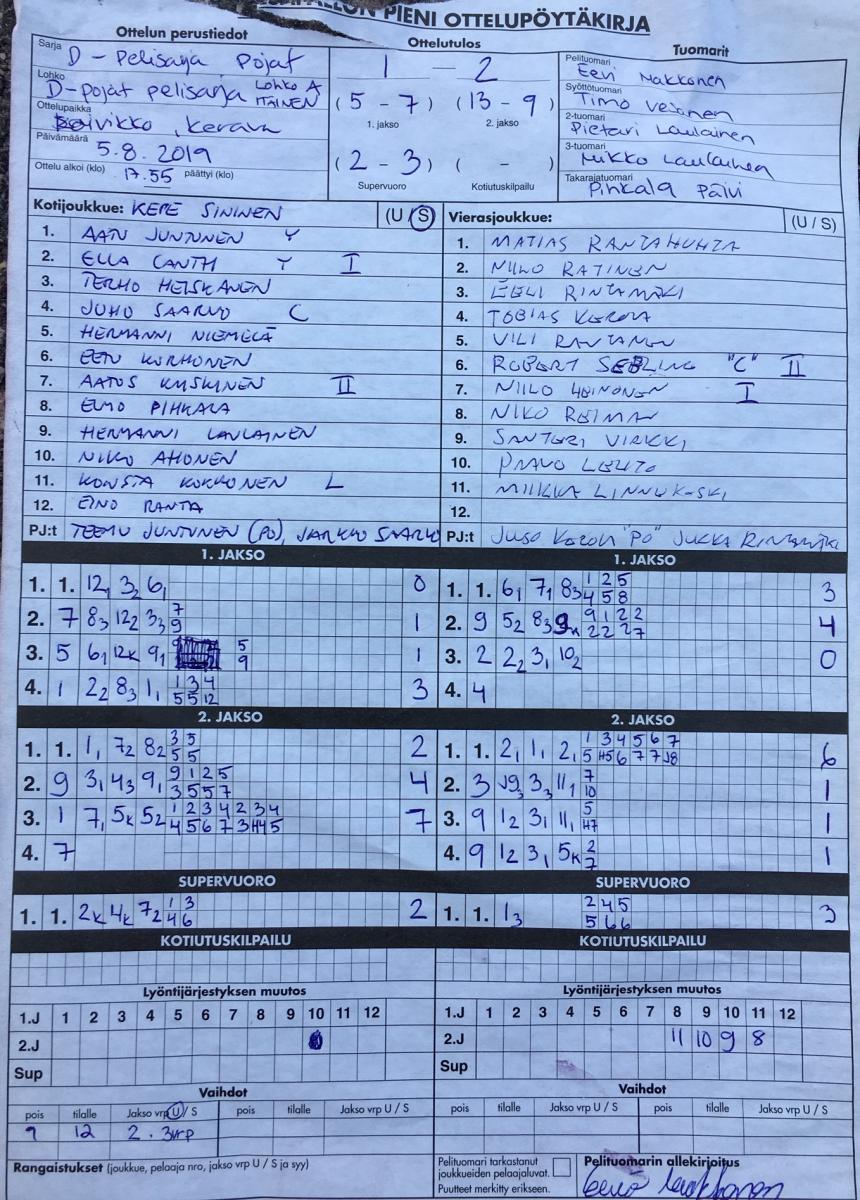 PIENI OTTELUPÖYTÄKIRJA
Ottelun perustiedot
Sarja D - pelisarja pojat
Lohko D-pojat pelisarja Lohko A ITÄINEN
Ottelupaikka Kerava
Päivämäärä 5.8.2019
Ottelu alkoi (klo) 17.55 päättyi (klo)
Ottelutulos
1 - 2
(5 - 7) (13 - 9)
1. jakso 2. jakso
(2 - 3) ( - )
Supervuoro Kotiutuskilpailu
Tuomarit
Pelituomari Eevi Nakkonen
Syöttötuomari Timo Vesanen
2-tuomari Pietari Laulainen
3-tuomari Mikko Laulainen
Takarajatuomari Pihkala Päivi
Kotijoukkue: KEPE SININEN (U / S)
1. AATU JUNTUNEN Y
2. ELLA CANTH Y I
3. TERHO HEISKANEN
4. JUHO SAARVO C
5. HERMANNI NIEMELÄ
6. EETU KORHONEN
7. AATOS KYLSKINEN II
8. ELMO PIHKALA
9. HERMANNI LAULAINEN
10. NIKO AHONEN
11. KONSTA KOKKONEN L
12. EINO RANTA
PJ:t TEEMU JUNTUNEN (PJ), JARKKO SAARVO
Vierasjoukkue: (U / S)
1. MATIAS RANTAHUHTA
2. NIILO RATINEN
3. EELI RINTAMÄKI
4. TOBIAS KOROMA
5. VILI RANTANEN
6. ROBERT SEBLING "C" II
7. NIILO HEINONEN I
8. NIKO REIMAN
9. SANTERI VIRKKI
10. PAAVO LEHTO
11. MIIKKA LINNUKOSKI
12.
PJ:t JUKKA RINTAMÄKI
1. JAKSO
1. 1. 12, 3, 6, 0
2. 7 8₃ 12₂ 3₃ 7 1
9
3. 5 6, 12K 9, 5 1
9
4. 1 2₂ 8₃ 1, 1 3 4 3
5 5 12
1. JAKSO
1. 1. 6, 7, 8₃ 1 2 5 3
4 5 8
2. 9 5₂ 8₃ 9K 9 1 2 2 4
2 2 2 7
3. 2 2₂ 3, 10₂ 0
4. 4
2. JAKSO
1. 1. 1, 7₂ 8₂ 3 5 2
5 5
2. 9 3, 4₃ 9, 9 1 2 5 4
3 5 5 7
3. 1 7, 5K 5₂ 1 2 3 4 2 3 4 7
4 5 6 7 3 H4 5
4. 7
2. JAKSO
1. 1. 2, 1, 2, 1 3 4 5 6 7 6
5 H5 6 7 7 J8
2. 3 J9₃ 3₃ 11₁ 7 1
10
3. 9 1₂ 3, 11, 5 1
H7
4. 9 1₂ 3, 5K 2 1
7
SUPERVUORO
1. 1. 2K 4K 7₂ 1 3 2
4 6
SUPERVUORO
1. 1. 1₃ 2 4 5 3
5 6 6
KOTIUTUSKILPAILU
KOTIUTUSKILPAILU
Lyöntijärjestyksen muutos
1.J 1 2 3 4 5 6 7 8 9 10 11 12
2.J
Sup
Lyöntijärjestyksen muutos
1.J 1 2 3 4 5 6 7 8 9 10 11 12
2.J 11 10 9 8
Sup
Vaihdot
pois tilalle Jakso vrp U / S pois tilalle Jakso vrp U / S
9 12 2. 3vrp
Vaihdot
pois tilalle Jakso vrp U / S pois tilalle Jakso vrp U / S
Rangaistukset (joukkue, pelaaja nro, jakso vrp U / S ja syy)
Pelituomari tarkastanut
joukkueiden pelaajaluvat.
Puutteet merkitty erikseen.
Pelituomarin allekirjoitus